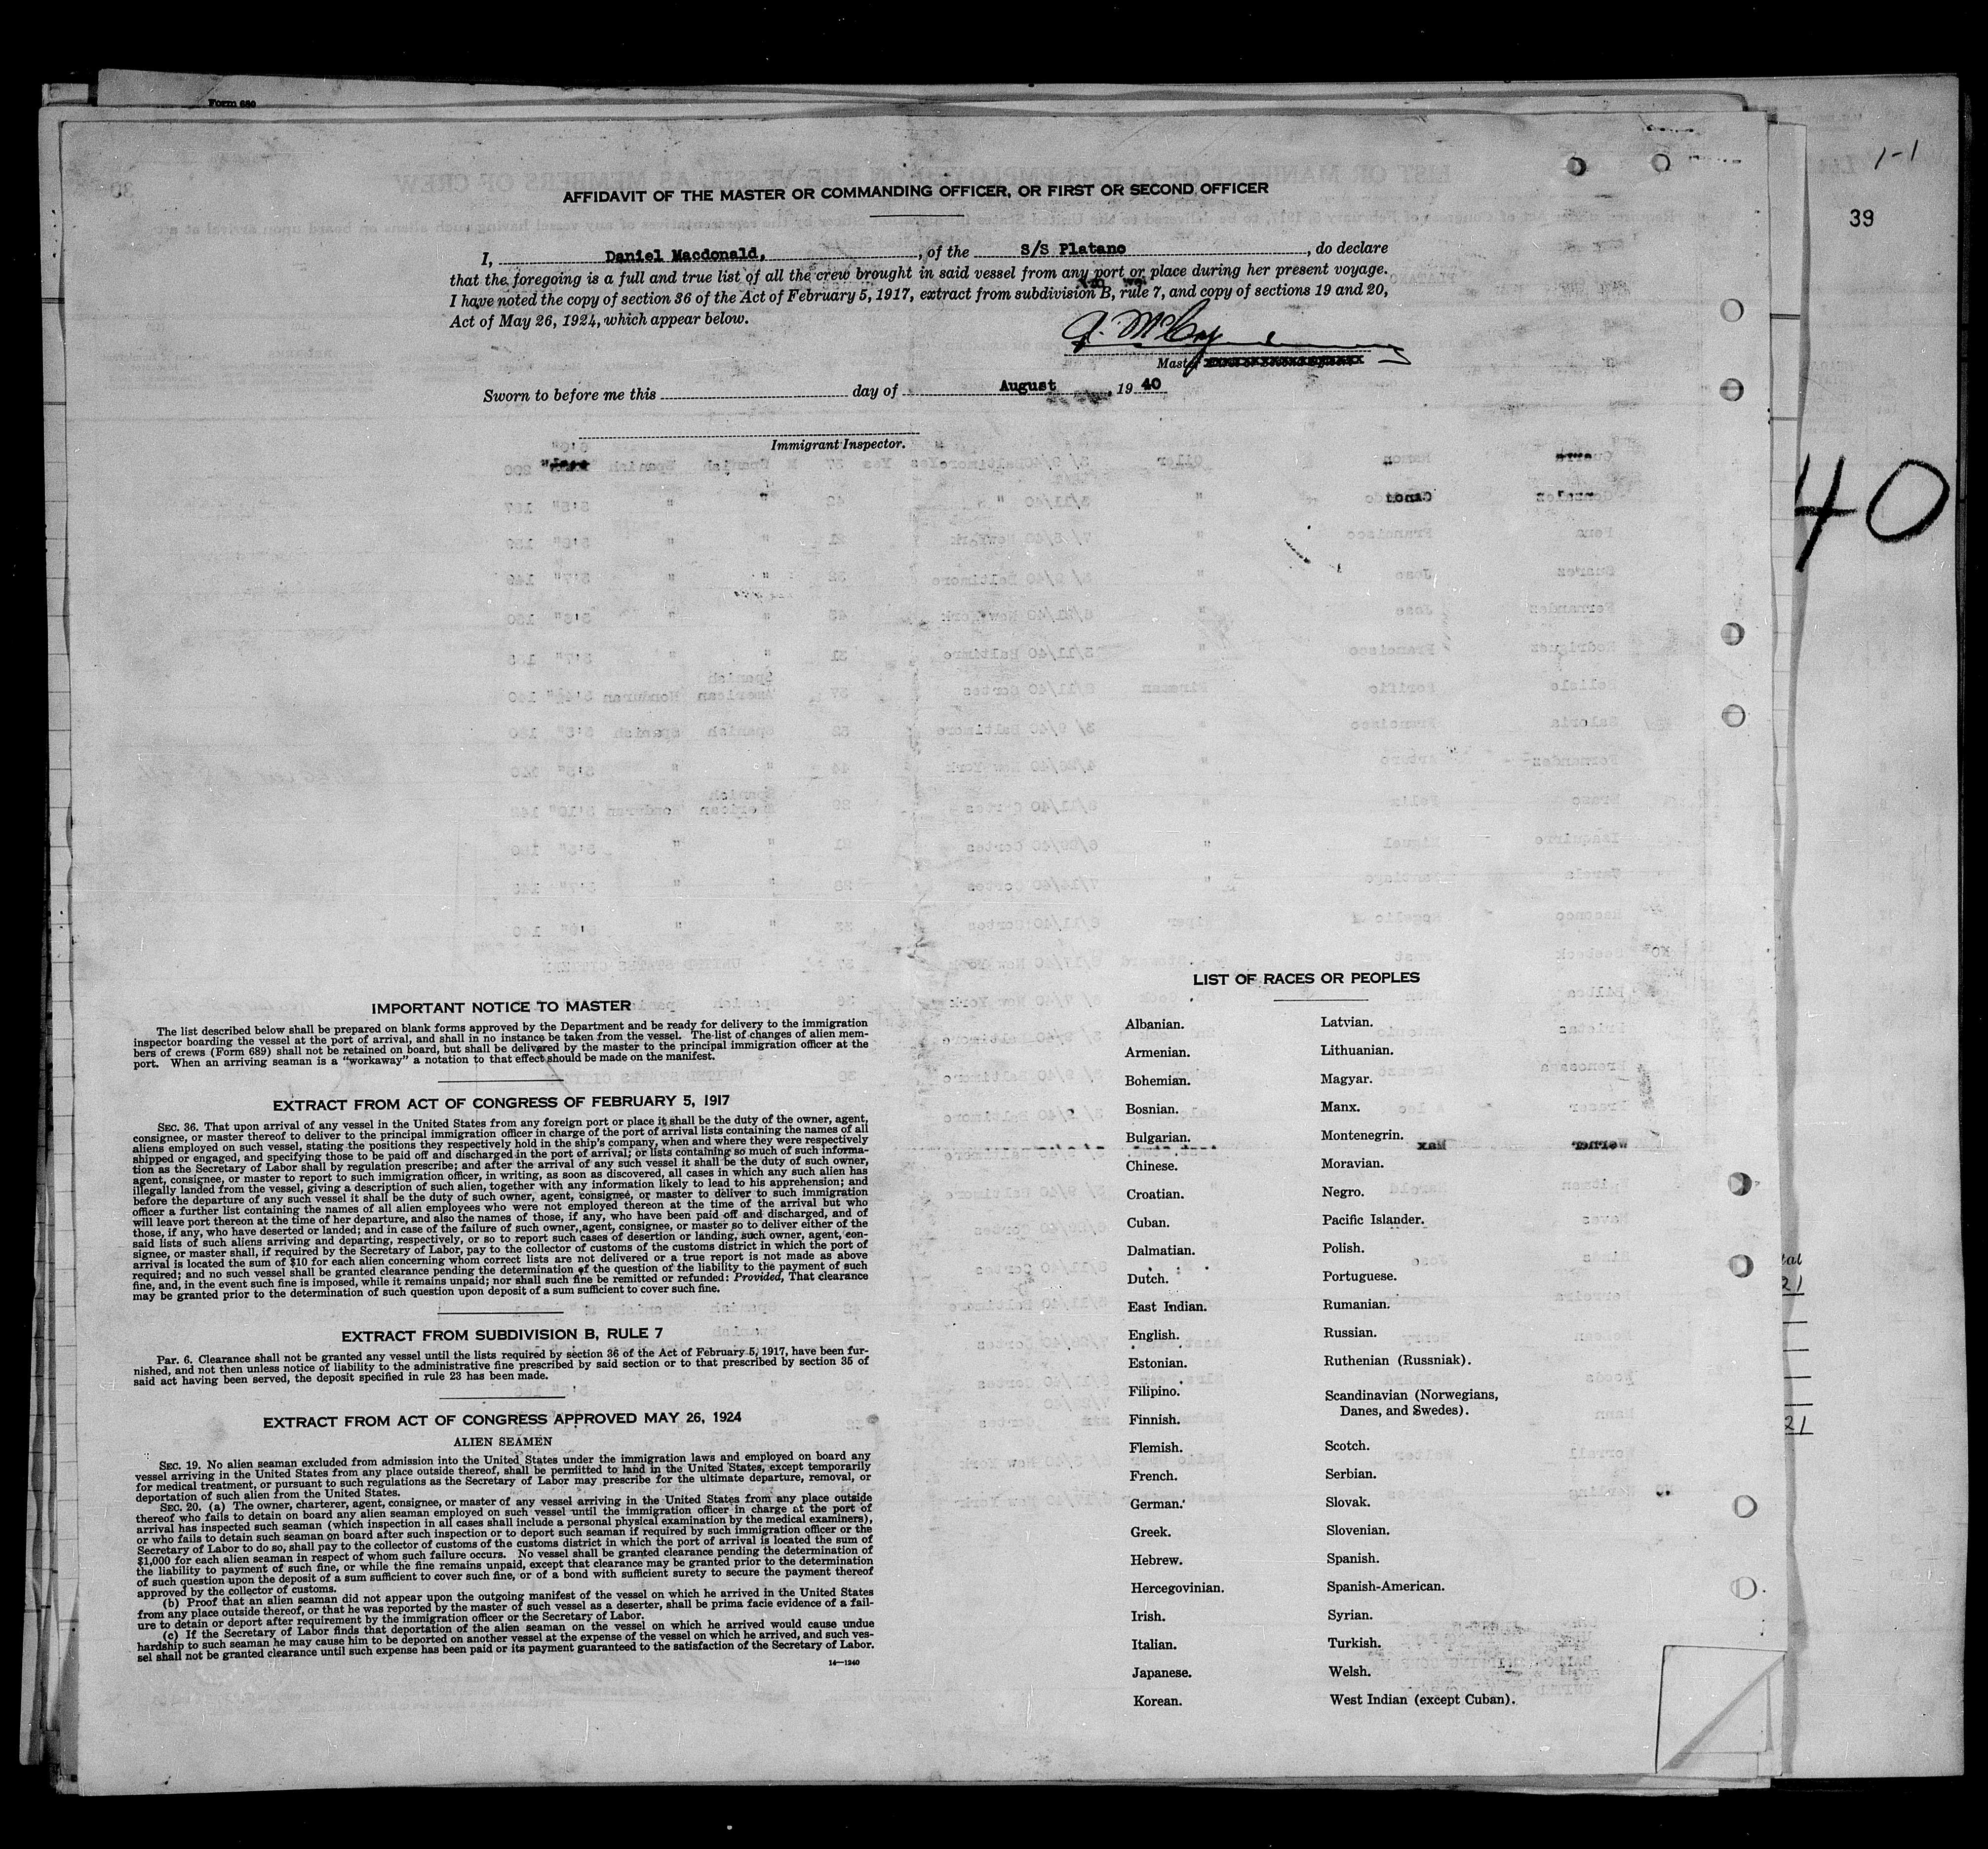 Form 680
1-1
39
AFFIDAVIT OF THE MASTER OR COMMANDING OFFICER, OR FIRST OR SECOND OFFICER
I, Daniel Macdonald, , of the S/S Platano , do declare
that the foregoing is a full and true list of all the crew brought in said vessel from any port or place during her present voyage.
I have noted the copy of section 36 of the Act of February 5, 1917, extract from subdivision B, rule 7, and copy of sections 19 and 20,
Act of May 26, 1924, which appear below.
Master
Sworn to before me this day of August , 19 40
Immigrant Inspector.
40
IMPORTANT NOTICE TO MASTER
The list described below shall be prepared on blank forms approved by the Department and be ready for delivery to the immigration
inspector boarding the vessel at the port of arrival, and shall in no instance be taken from the vessel. The list of changes of alien mem-
bers of crews (Form 689) shall not be retained on board, but shall be delivered by the master to the principal immigration officer at the
port. When an arriving seaman is a "workaway" a notation to that effect should be made on the manifest.
EXTRACT FROM ACT OF CONGRESS OF FEBRUARY 5, 1917
SEC. 36. That upon arrival of any vessel in the United States from any foreign port or place it shall be the duty of the owner, agent,
consignee, or master thereof to deliver to the principal immigration officer in charge of the port of arrival lists containing the names of all
aliens employed on such vessel, stating the positions they respectively hold in the ship's company, when and where they were respectively
shipped or engaged, and specifying those to be paid off and discharged in the port of arrival; or lists containing so much of such informa-
tion as the Secretary of Labor shall by regulation prescribe; and after the arrival of any such vessel it shall be the duty of such owner,
agent, consignee, or master to report to such immigration officer, in writing, as soon as discovered, all cases in which any such alien has
illegally landed from the vessel, giving a description of such alien, together with any information likely to lead to his apprehension; and
before the departure of any such vessel it shall be the duty of such owner, agent, consignee, or master to deliver to such immigration
officer a further list containing the names of all alien employees who were not employed thereon at the time of the arrival but who
will leave port thereon at the time of her departure, and also the names of those, if any, who have been paid off and discharged, and of
those, if any, who have deserted or landed; and in case of the failure of such owner, agent, consignee, or master so to deliver either of the
said lists of such aliens arriving and departing, respectively, or so to report such cases of desertion or landing, such owner, agent, con-
signee, or master shall, if required by the Secretary of Labor, pay to the collector of customs of the customs district in which the port of
arrival is located the sum of $10 for each alien concerning whom correct lists are not delivered or a true report is not made as above
required; and no such vessel shall be granted clearance pending the determination of the question of the liability to the payment of such
fine, and, in the event such fine is imposed, while it remains unpaid; nor shall such fine be remitted or refunded: Provided, That clearance
may be granted prior to the determination of such question upon deposit of a sum sufficient to cover such fine.
EXTRACT FROM SUBDIVISION B, RULE 7
Par. 6. Clearance shall not be granted any vessel until the lists required by section 36 of the Act of February 5, 1917, have been fur-
nished, and not then unless notice of liability to the administrative fine prescribed by said section or to that prescribed by section 35 of
said act having been served, the deposit specified in rule 23 has been made.
EXTRACT FROM ACT OF CONGRESS APPROVED MAY 26, 1924
ALIEN SEAMEN
SEC. 19. No alien seaman excluded from admission into the United States under the immigration laws and employed on board any
vessel arriving in the United States from any place outside thereof, shall be permitted to land in the United States, except temporarily
for medical treatment, or pursuant to such regulations as the Secretary of Labor may prescribe for the ultimate departure, removal, or
deportation of such alien from the United States.
SEC. 20. (a) The owner, charterer, agent, consignee, or master of any vessel arriving in the United States from any place outside
thereof who fails to detain on board any alien seaman employed on such vessel until the immigration officer in charge at the port of
arrival has inspected such seaman (which inspection in all cases shall include a personal physical examination by the medical examiners),
or who fails to detain such seaman on board after such inspection or to deport such seaman if required by such immigration officer or the
Secretary of Labor to do so, shall pay to the collector of customs of the customs district in which the port of arrival is located the sum of
$1,000 for each alien seaman in respect of whom such failure occurs. No vessel shall be granted clearance pending the determination of
the liability to payment of such fine, or while the fine remains unpaid, except that clearance may be granted prior to the determination
of such question upon the deposit of a sum sufficient to cover such fine, or of a bond with sufficient surety to secure the payment thereof
approved by the collector of customs.
(b) Proof that an alien seaman did not appear upon the outgoing manifest of the vessel on which he arrived in the United States
from any place outside thereof, or that he was reported by the master of such vessel as a deserter, shall be prima facie evidence of a fail-
ure to detain or deport after requirement by the immigration officer or the Secretary of Labor.
(c) If the Secretary of Labor finds that deportation of the alien seaman on the vessel on which he arrived would cause undue
hardship to such seaman he may cause him to be deported on another vessel at the expense of the vessel on which he arrived, and such ves-
sel shall not be granted clearance until such expense has been paid or its payment guaranteed to the satisfaction of the Secretary of Labor.
14—1240
LIST OF RACES OR PEOPLES
Albanian.
Armenian.
Bohemian.
Bosnian.
Bulgarian.
Chinese.
Croatian.
Cuban.
Dalmatian.
Dutch.
East Indian.
English.
Estonian.
Filipino.
Finnish.
Flemish.
French.
German.
Greek.
Hebrew.
Hercegovinian.
Irish.
Italian.
Japanese.
Korean.
Latvian.
Lithuanian.
Magyar.
Manx.
Montenegrin.
Moravian.
Negro.
Pacific Islander.
Polish.
Portuguese.
Rumanian.
Russian.
Ruthenian (Russniak).
Scandinavian (Norwegians,
Danes, and Swedes).
Scotch.
Serbian.
Slovak.
Slovenian.
Spanish.
Spanish-American.
Syrian.
Turkish.
Welsh.
West Indian (except Cuban).
tal
21
21